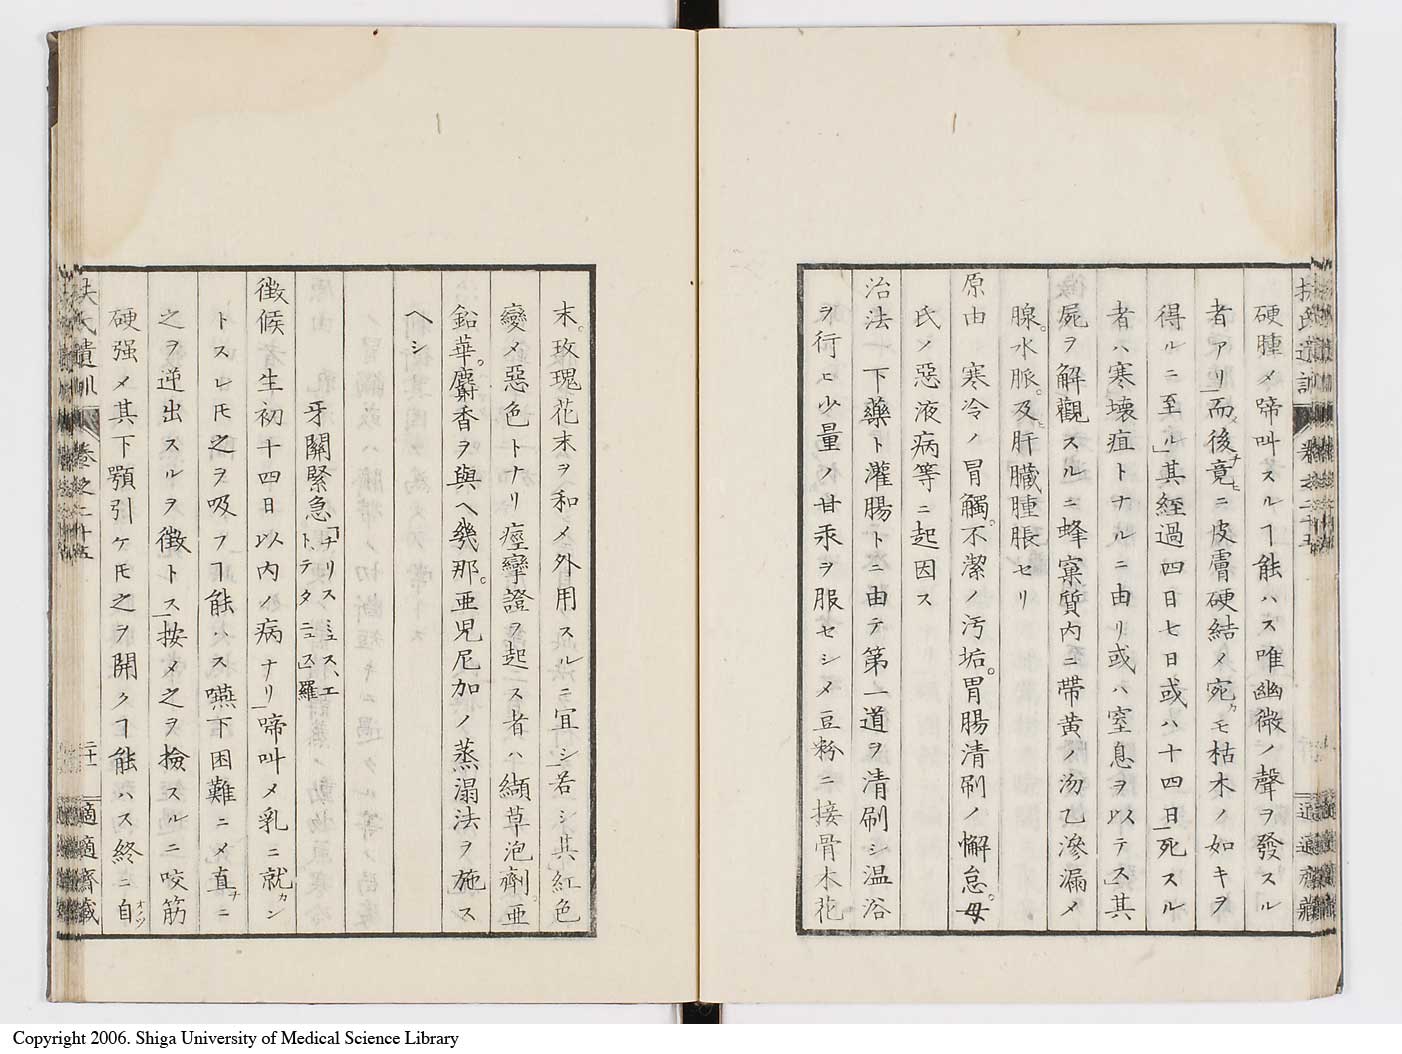 硬腫乄啼叫スルヿ能ハス唯幽微ノ聲ヲ發スル
者アリ」而乄後竟ナヒニ皮膚硬結乄宛カモ枯木ノ如キヲ
得ルニ至ル」其経過四日七日或ハ十四日」死スル
者ハ寒壊疽トナルニ由リ或ハ窒息ヲ以テス」其
屍ヲ解觀スルニ蜂窠質内ニ帶黄ノ汤乙滲漏乄
腺。水脈。及ヒ肝臓腫脹セリ
原由　寒冷ノ冒觸。不潔ノ汚垢。胃腸清刷ノ懈怠。母
氏ノ惡液病等ニ起因ス
治法　下藥ト灌腸トニ由テ第一道ヲ清刷シ温浴
ヲ行ヒ少量ノ甘汞ヲ服セシメ豆粉ニ接骨木花
扶氏遺訓　卷之二十五
適適齋藏
末。玫瑰花末ヲ和乄外用スルニ宜シ」若シ其紅色
變乄惡色トナリ痙攣證ヲ起ス者ハ纈草泡劑。亜
鉛華。麝香ヲ與ヘ幾那。亜兒尼加ノ蒸溻法ヲ施ス
ヘシ
牙關緊急「ナリスヱス、エト、テタニュス」羅
徴候　者生初十四日以内ノ病ナリ」啼叫乄乳ニ就カン
トスレ𪜈之ヲ吸フヿ能ハス嚥下困難ニ乄直ナニ
之ヲ逆出スルヲ徴トス」按乄之ヲ撿スルニ咬筋
硬强乄其下顎引ケ𪜈之ヲ開クヿ能ハス終ニ自オツ
扶氏遺訓　卷之二十五　二十一　適適齋藏
Copyright 2006. Shiga University of Medical Science Library